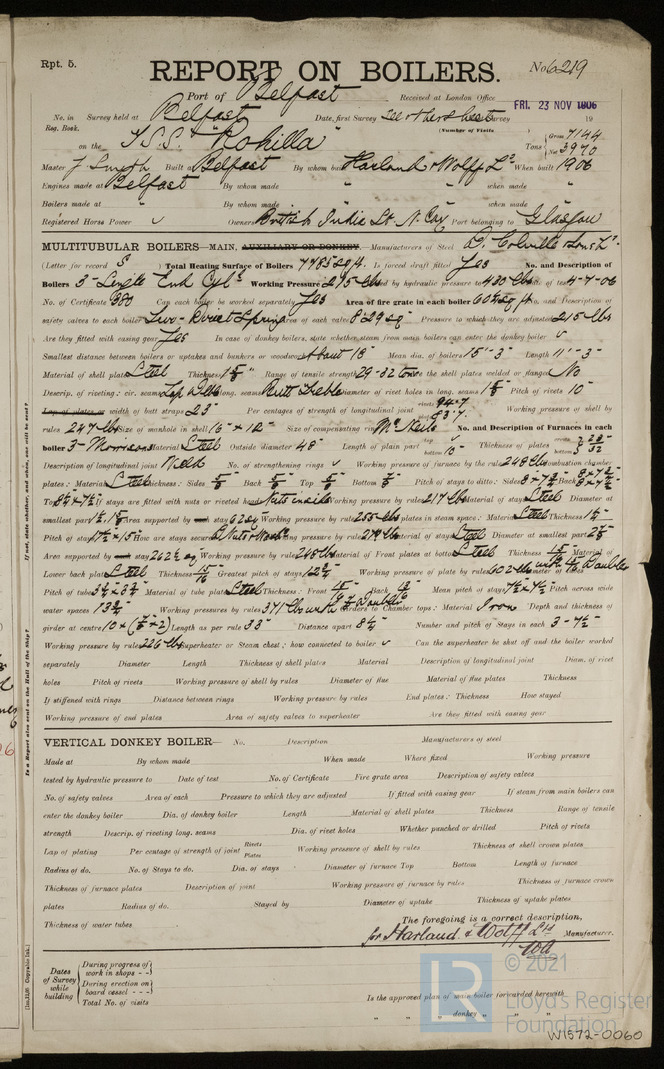 Rpt. 5.
REPORT ON BOILERS.
No 6219
Port of Belfast
Received at London Office FRI. 23 NOV 1906
No. in Survey held at Belfast Date, first Survey See other sheet Survey 19
Reg. Book.
(Number of Visits
on the T.S.S. "Rohilla" Tons { Gross 7144 Net 3970
Master J Smyth Built at Belfast By whom built Harland & Wolff Ld When built 1906
Engines made at Belfast By whom made " when made "
Boilers made at " By whom made " when made "
Registered Horse Power Owners British India St. N. Coy Port belonging to Glasgow
MULTITUBULAR BOILERS—MAIN, AUXILIARY OR DONKEY.—Manufacturers of Steel D. Colville & Sons Ld.
(Letter for record S) Total Heating Surface of Boilers 7785 sq ft Is forced draft fitted Yes No. and Description of
Boilers 3 - Single End Cyls Working Pressure 215 lbs Tested by hydraulic pressure to 430 lbs Date of test 4-7-06
No. of Certificate Can each boiler be worked separately Yes Area of fire grate in each boiler 60½ sq ft No. and Description of
safety valves to each boiler Two - Direct Spring Area of each valve 8.29 sq " Pressure to which they are adjusted 215 lbs
Are they fitted with easing gear Yes In case of donkey boilers, state whether steam from main boilers can enter the donkey boiler
Smallest distance between boilers or uptakes and bunkers or woodwork About 18" Mean dia. of boilers 15'-3" Length 11'-3"
Material of shell plates Steel Thickness Range of tensile strength 29-32 tons Are the shell plates welded or flanged No
Descrip. of riveting: cir. seams Lap Dble long. seams Butt Treble Diameter of rivet holes in long. seams Pitch of rivets 10"
Lap of plates or width of butt straps 23" Per centages of strength of longitudinal joint rivets 94.7 plate 83.7 Working pressure of shell by
rules 247 lbs Size of manhole in shell 16" x 12" Size of compensating ring McNeils No. and Description of Furnaces in each
boiler 3 - Morrisons Material Steel Outside diameter 48" Length of plain part top bottom 10" Thickness of plates crown bottom
Description of longitudinal joint Weld No. of strengthening rings Working pressure of furnace by the rules 248 lbs Combustion chamber
plates: Material Steel Thickness: Sides 5/8 Back 5/8 Top 5/8 Bottom 7/8 Pitch of stays to ditto: Sides Back
Top 8½ x 7½ If stays are fitted with nuts or riveted heads Nuts inside Working pressure by rules 217 lbs Material of stays Steel Diameter at
smallest part Area supported by each stay 62 sq " Working pressure by rules 255 lbs End plates in steam space: Material Steel Thickness
Pitch of stays 17½ x 15 How are stays secured Working pressure by rules Material of stays Steel Diameter at smallest part
Area supported by each stay 262½ sq " Working pressure by rules 245 lbs Material of Front plates at bottom Steel Thickness Material of
Lower back plate Steel Thickness 15/16 Greatest pitch of stays 12¾" Working pressure of plate by rules Diameter of tubes
Pitch of tubes Material of tube plates Steel Thickness: Front Back Mean pitch of stays 7½ x 7½ Pitch across wide
water spaces 13¾" Working pressures by rules Girders to Chamber tops: Material Iron Depth and thickness of
girder at centre 10 x (7/8 x 2) Length as per rule 33" Distance apart 8½ Number and pitch of Stays in each 3 - 7½"
Working pressure by rules 226 lbs Superheater or Steam chest; how connected to boiler Can the superheater be shut off and the boiler worked
separately Diameter Length Thickness of shell plates Material Description of longitudinal joint Diam. of rivet
holes Pitch of rivets Working pressure of shell by rules Diameter of flue Material of flue plates Thickness
If stiffened with rings Distance between rings Working pressure by rules End plates: Thickness How stayed
Working pressure of end plates Area of safety valves to superheater Are they fitted with easing gear
VERTICAL DONKEY BOILER— No. Description Manufacturers of steel
Made at By whom made When made Where fixed Working pressure
tested by hydraulic pressure to Date of test No. of Certificate Fire grate area Description of safety valves
No. of safety valves Area of each Pressure to which they are adjusted If fitted with easing gear If steam from main boilers can
enter the donkey boiler Dia. of donkey boiler Length Material of shell plates Thickness Range of tensile
strength Descrip. of riveting long. seams Dia. of rivet holes Whether punched or drilled Pitch of rivets
Lap of plating Per centage of strength of joint Rivets Plates Working pressure of shell by rules Thickness of shell crown plates
Radius of do. No. of Stays to do. Dia. of stays Diameter of furnace Top Bottom Length of furnace
Thickness of furnace plates Description of joint Working pressure of furnace by rules Thickness of furnace crown
plates Radius of do. Stayed by Diameter of uptake Thickness of uptake plates
Thickness of water tubes The foregoing is a correct description,
for Harland & Wolff Ld Manufacturer.
Dates of Survey while building
During progress of work in shops - -
During erection on board vessel - - -
Total No. of visits
Is the approved plan of main boiler forwarded herewith
" " " donkey " " "
Is a Report also sent on the Hull of the Ship?
If not, state whether, and when, one will be sent?
LR © 2021
Lloyd's Register
Foundation
W1572-0060